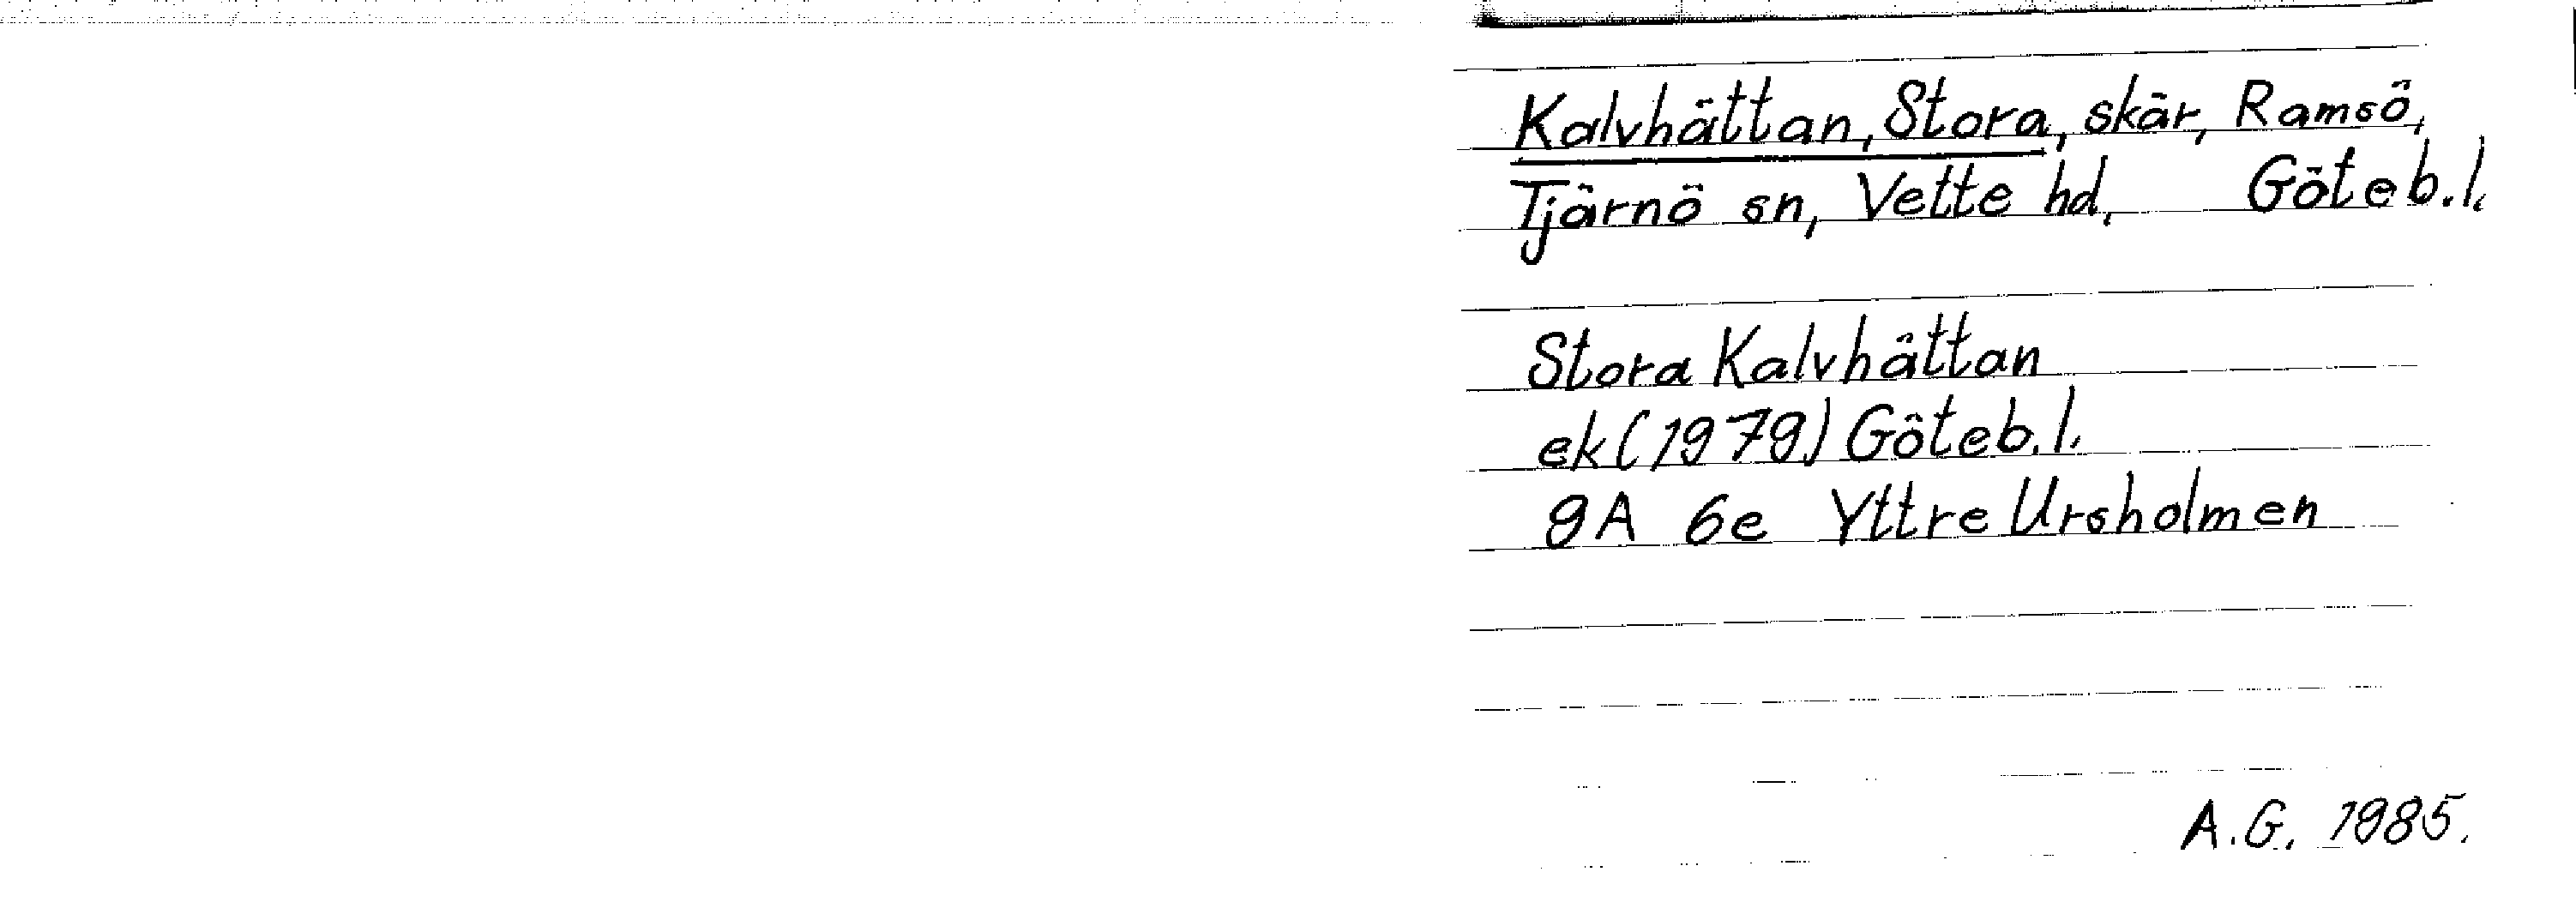 Kalvhättan, Stora, skär, Ramsö,
Tjärnö sn, Vette hd, Göteb.l.
Stora Kalvhättan
ek (1979) Göteb.l.
9A 6e Yttre Ursholmen
A.G. 1985.